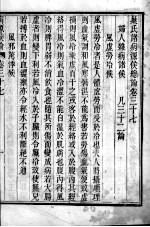 巢氏諸病源候總論卷三十七
婦人雜病諸候 凡三十二論
風虛勞冷候
風虛勞冷者是人體虛勞而受於冷也夫人將攝順
理則血氣調和風寒暑濕不能為害若勞傷血氣便致
虛損則風冷乘虛而干之或客於經絡或入於腹內其
經絡得風冷則氣血冷澀不能自溫於肌膚也腹內得風
冷則脾胃弱不消飲食也隨其所傷而變成病若大腸
虛者則變下利若風冷入於子臟則令臟冷致使無兒
若搏於血則血澀壅亦令經水不利斷絕不通
風邪驚悸候